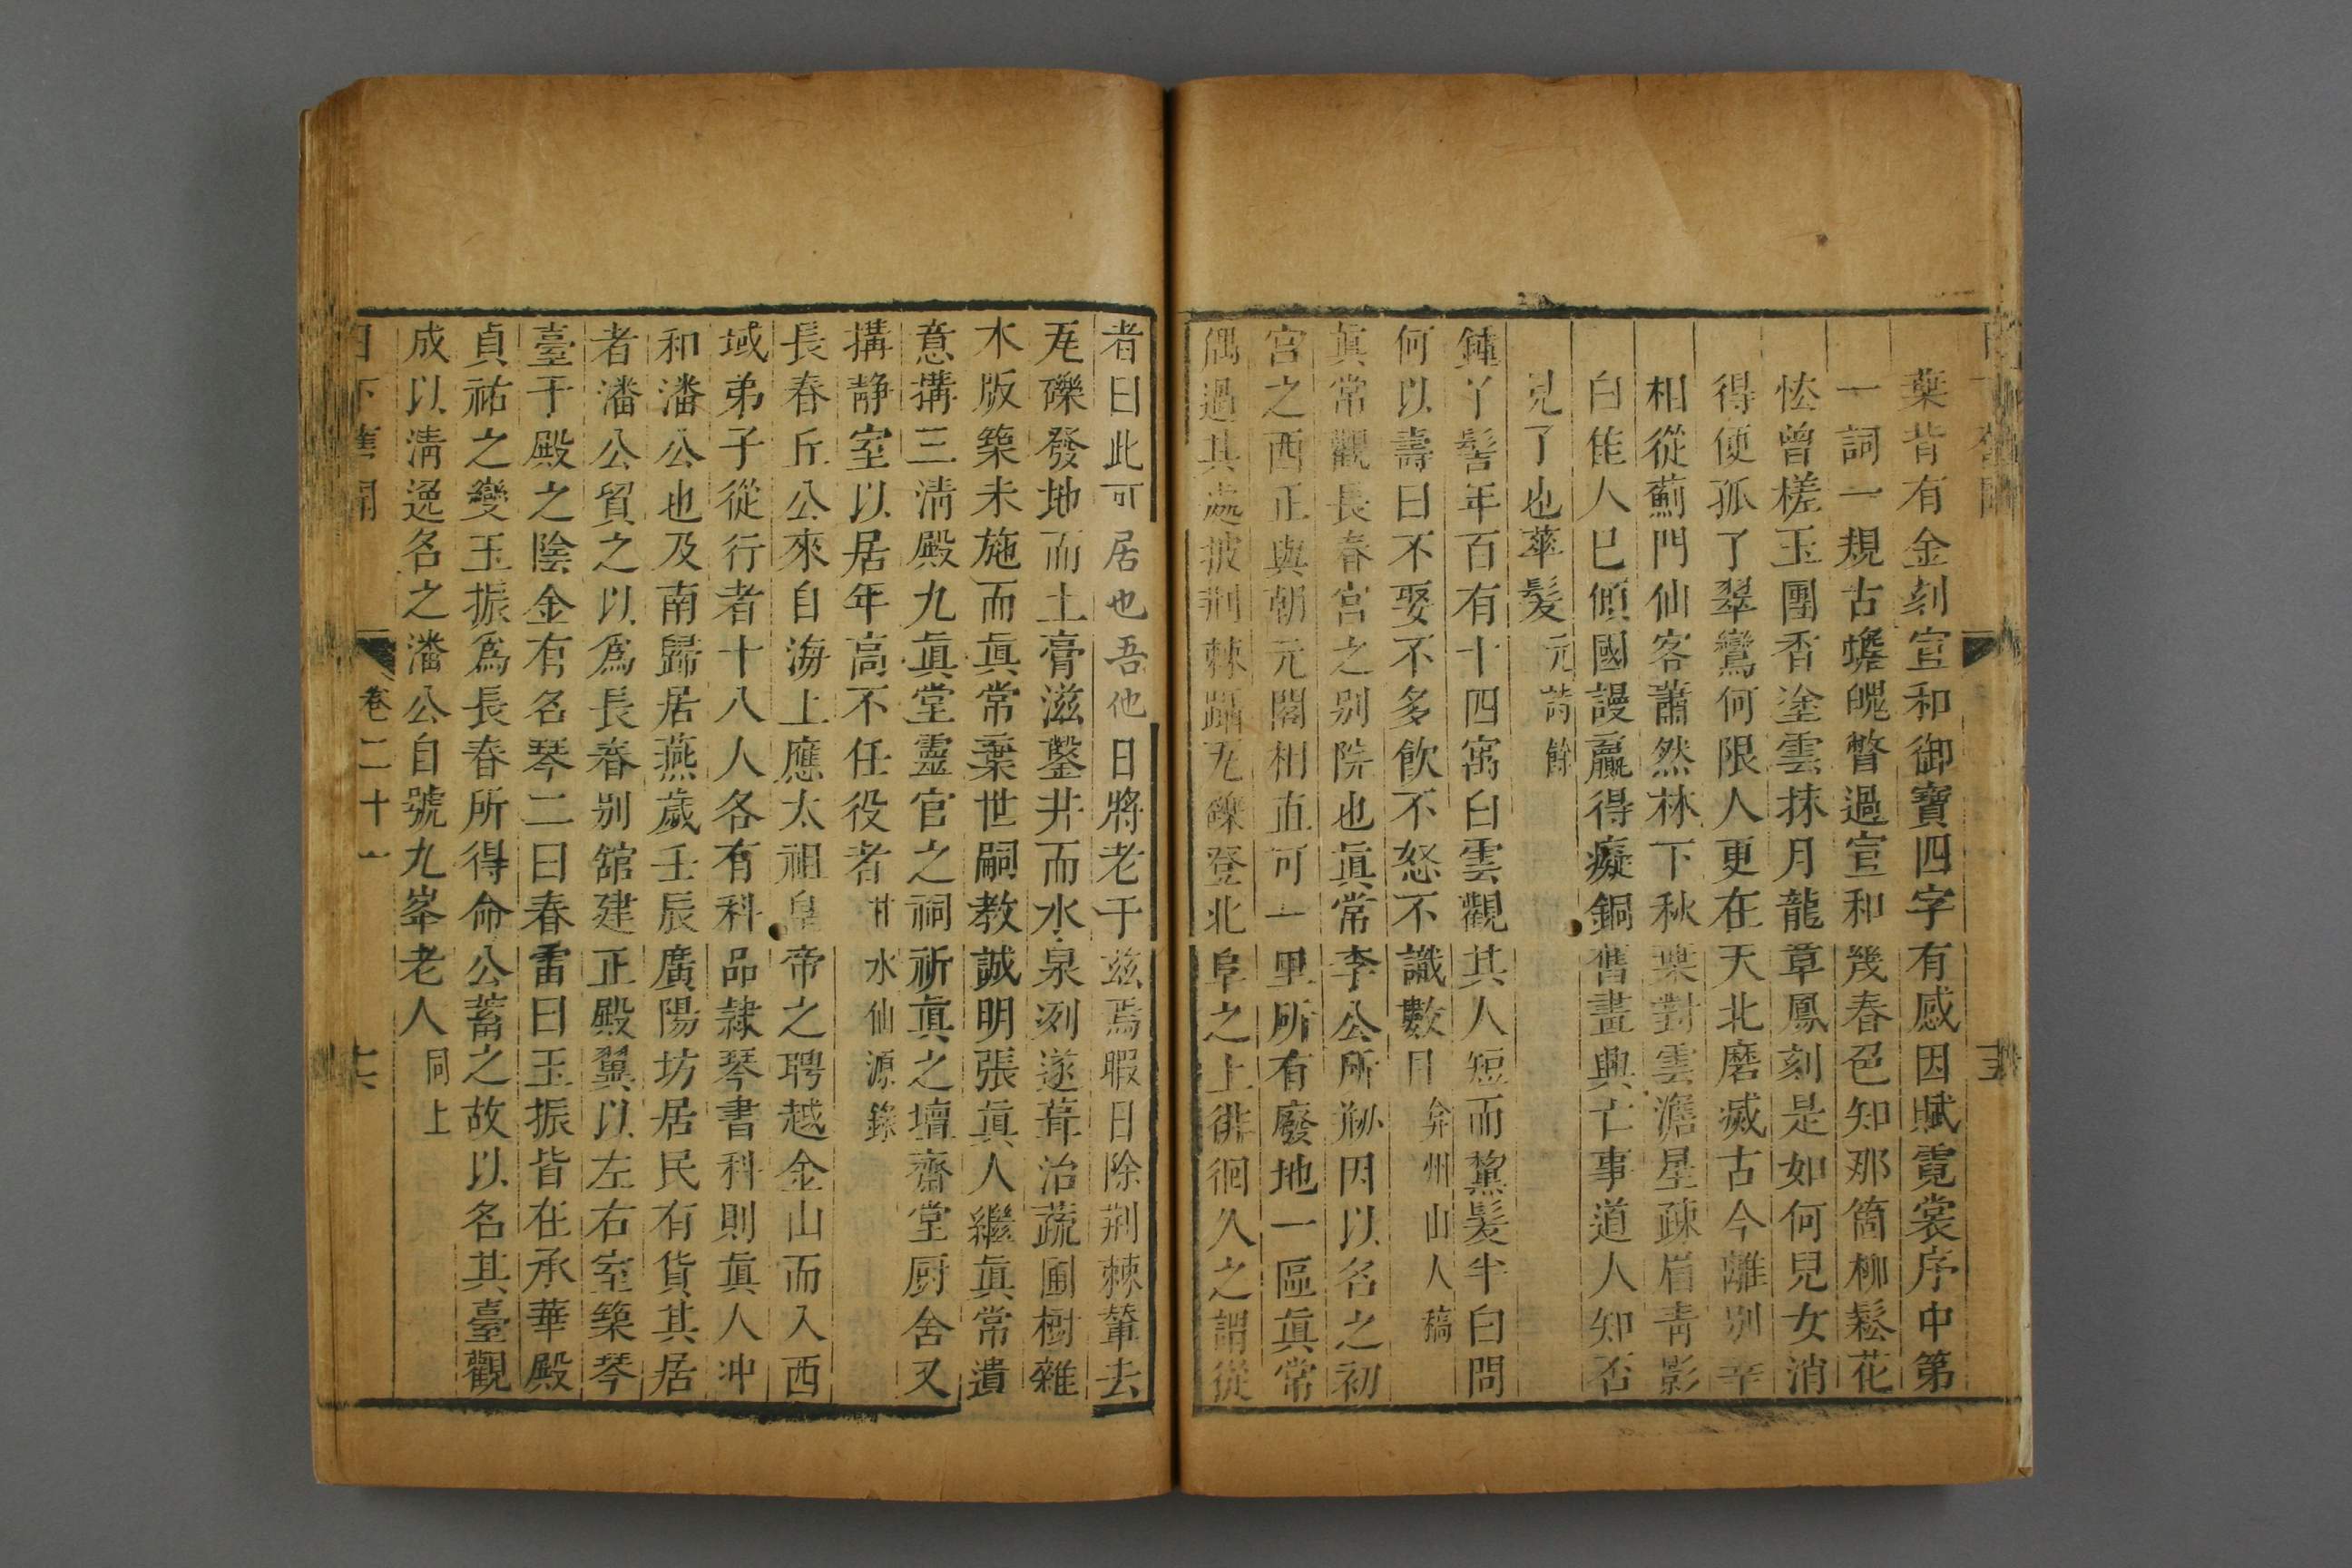 葉背有金刻宣和御寶四字有感因賦霓裳序中第
一詞一規古蟾魄瞥過宣和幾春色知那箇柳鬆花
怯曾槎玉團香塗雲抹月龍章鳳刻是如何兒女消
得便孤了翠鸞何限人更在天北磨滅古今離別幸
相從薊門仙客蕭然林下秋葉對雲澹星疎眉靑影
白佳人已傾國謾贏得癡銅舊畫興亡事道人知否
見了也華髮元詩餘
鍾丫髻年百有十四寓白雲觀其人短而黧髮半白問
何以壽曰不娶不多飲不怒不識數目弇州山人稿
眞常觀長春宮之別院也眞常李公所剏因以名之初
宮之西正與朝元閣相直可一里所有廢地一區眞常
偶過其處披荆棘躡瓦礫登北阜之上徘徊久之謂從
者曰此可居也吾他日將老于兹焉暇日除荆棘輦去
瓦礫發地而土膏滋鑿井而水泉冽遂葺治蔬圃樹雜
木版築未施而眞常棄世嗣教誠明張眞人繼眞常遺
意搆三淸殿九眞堂靈官之祠祈眞之壇齋堂厨舍又
搆靜室以居年高不任役者甘水仙源錄
長春丘公來自海上應太祖皇帝之聘越金山而入西
域弟子從行者十八人各有科品隷琴書科則眞人冲
和潘公也及南歸居燕歲壬辰廣陽坊居民有貨其居
者潘公貿之以爲長春別舘建正殿翼以左右室築琴
臺于殿之陰金有名琴二曰春雷曰玉振皆在承華殿
貞祐之變玉振爲長春所得命公蓄之故以名其臺觀
成以淸逸名之潘公自號九峯老人同上
日下舊聞 卷二十一 十六